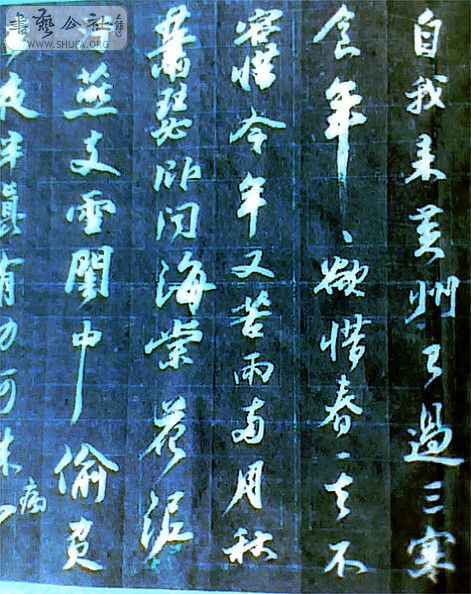 自我来黄州已過三寒
食年々欲惜春々去不
容惜今年又苦雨兩月秋
蕭瑟卧闻海棠花泥
汙燕支雪闇中偷負
夜半真有力何殊
病
書藝公社
WWW.SHUFA.ORG